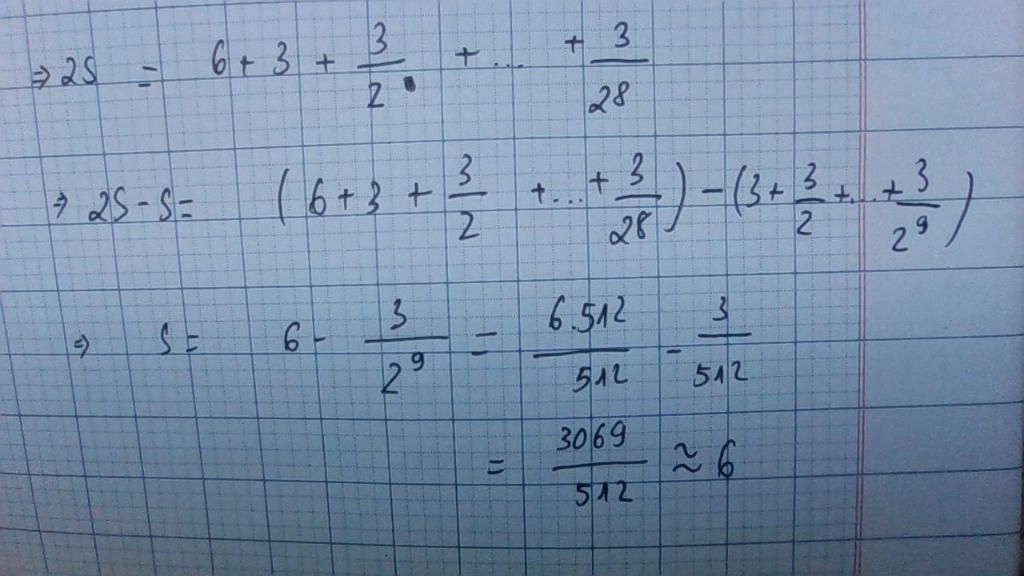 ⇒ 2S = 6 + 3 + 3/2 + ... + 3/28
⇒ 2S - S = (6 + 3 + 3/2 + ... + 3/28) - (3 + 3/2 + ... + 3/2⁹)
⇒ S = 6 - 3/2⁹ = 6.512/512 - 3/512
= 3069/512 ≈ 6